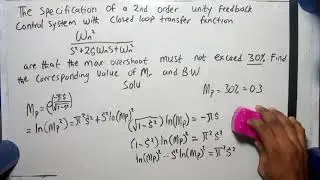 The Specification of a 2nd order unity Feedback
Control System with closed loop transfer function
Wn²
S²+2ζWnS+Wn²
are that the max overshoot must not exceed 30%. Find
the corresponding value of Mr and BW
Solu
Mp = 30% = 0.3
ln(Mp)² = π²ζ² + ζ² ln(Mp)²
(√1-ζ²) ln(Mp) = -πζ
(1-ζ²) ln(Mp)² = π²ζ²
ln(Mp)² - ζ² ln(Mp)² = π²ζ²